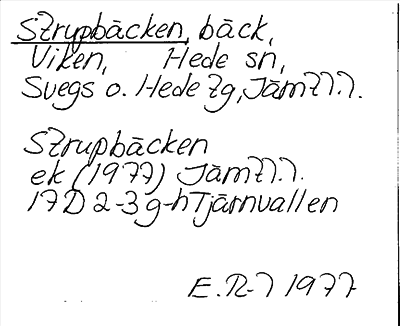 Strypbäcken, bäck,
Viken, Hede sn,
Svegs o. Hede tg, Jämtl.l.
Strupbäcken
ek (1977) Jämtl.l.
17D 2-3 g-h Tjärnvallen
E. R-l 1977